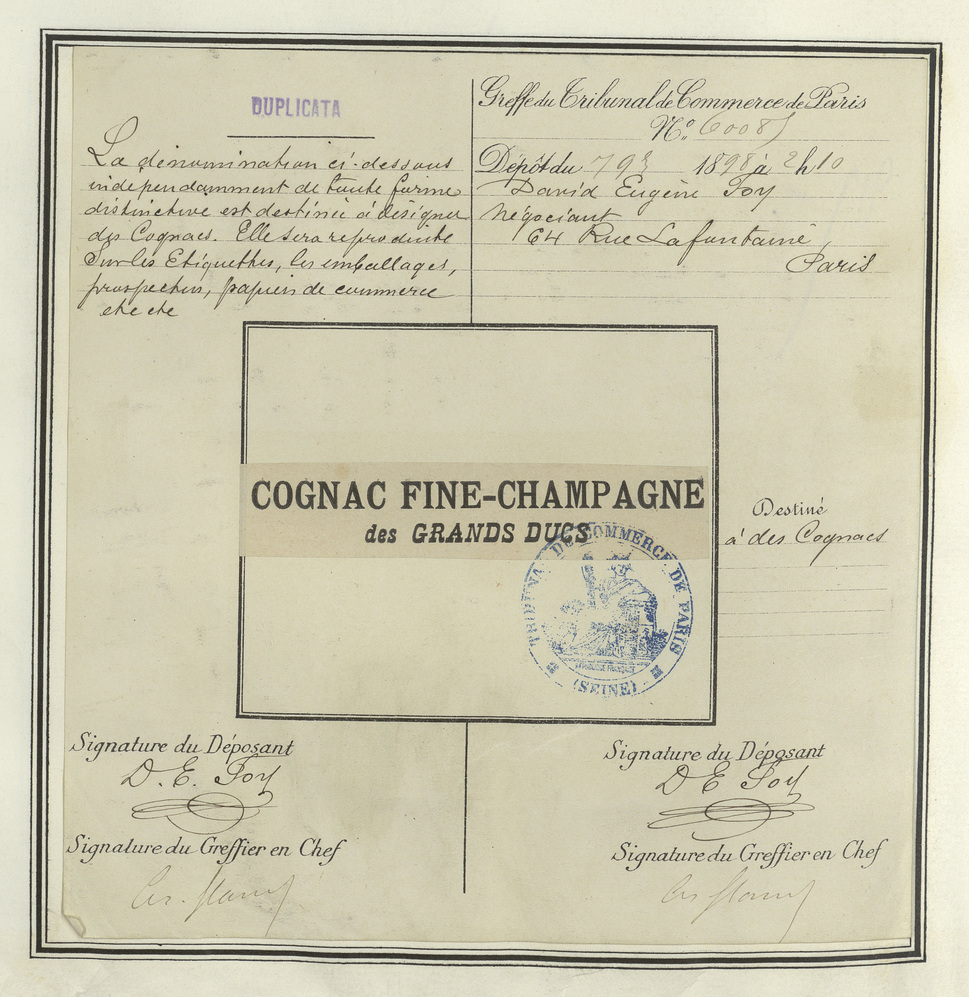 DUPLICATA
La dénomination ci-dessous
independamment de toute forme
distinctive est destinée à désigner
des Cognacs. Elle sera reproduite
sur les Etiquettes, les emballages,
prospectus, papiers de commerce
etc etc
Greffe du Tribunal de Commerce de Paris
N°
Dépôt du 1898 à 2h10
David Eugène Foy
Négociant
64 Rue Lafontaine,
Paris
COGNAC FINE-CHAMPAGNE
des GRANDS DUCS
TRIBUNAL DU COMMERCE DE PARIS
(SEINE)
Destiné
à des Cognacs
Signature du Déposant
D. E. Foy
Signature du Greffier en Chef
Signature du Déposant
D E Foy
Signature du Greffier en Chef